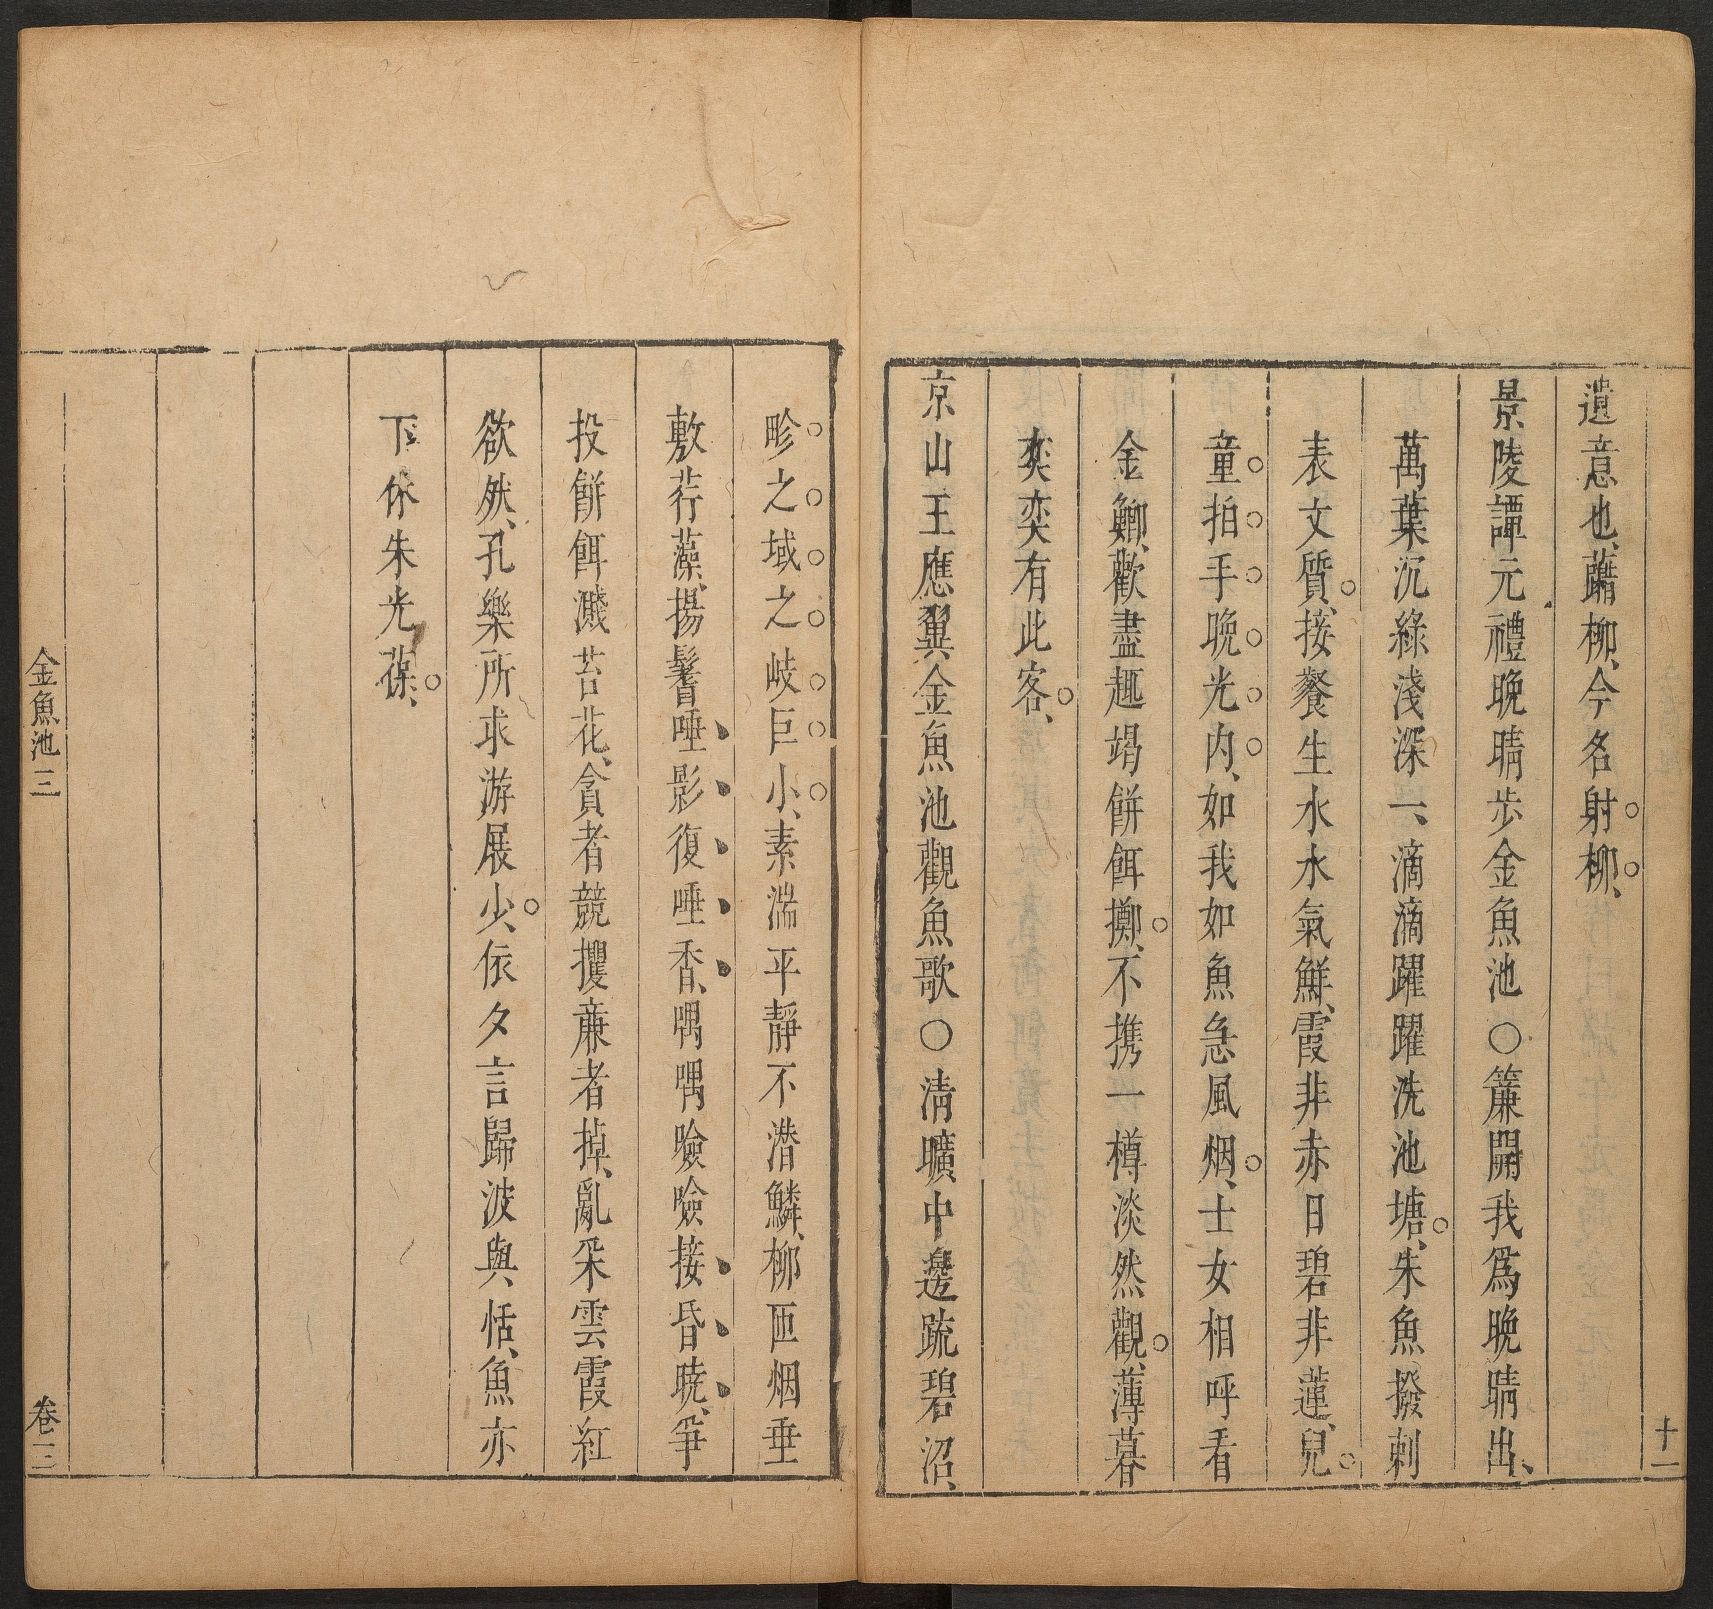 十一
遺意也、䕽柳、今名射柳、
景陵譚元禮晚晴步金魚池○簾開我爲晚晴出、
萬葉沉綠淺深一、滴滴躍躍洗池塘、朱魚撥剌
表文質、接餐生水水氣鮮、霞非赤日碧非蓮、兒
童拍手晚光內、如我如魚急風烟、士女相呼看
金鯽、歡盡趣竭餅餌擲、不携一樽淡然觀、薄暮
奕奕有此客、
京山王應翼金魚池觀魚歌○淸曠中邊疏碧沼、
畛之域之岐巨小、素湍平靜不潛鱗、柳匝烟垂
敷荇藻、揚鬐唾影復唾香、喁喁噞噞接昏曉、爭
投餅餌濺苔花、貪者競攫亷者掉、亂采雲霞紅
欲然、孔樂所求游展少、依夕言歸波與恬、魚亦
下依朱光葆、
金魚池三
卷三